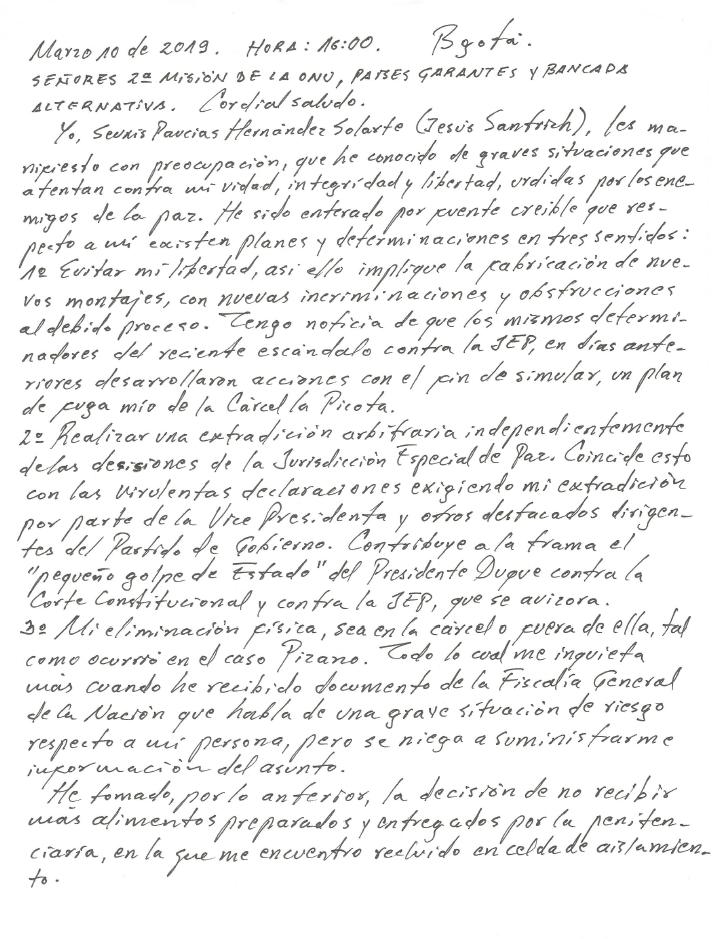 Marzo 10 de 2019. HORA: 16:00. Bgotá.
SEÑORES 2ª MISIÓN DE LA ONU, PAISES GARANTES Y BANCADA
ALTERNATIVA. Cordial saludo.
Yo, Seuxis Paucias Hernández Solarte (Jesús Santrich), les ma-
nifiesto con preocupación, que he conocido de graves situaciones que
atentan contra mi vidad, integridad y libertad, urdidas por los ene-
migos de la paz. He sido enterado por fuente creible que res-
pecto a mí existen planes y determinaciones en tres sentidos:
1º Evitar mi libertad, así ello implique la fabricación de nue-
vos montajes, con nuevas incriminaciones y obstrucciones
al debido proceso. Tengo noticia de que los mismos determi-
nadores del reciente escándalo contra la JEP, en días ante-
riores desarrollaron acciones con el fin de simular, un plan
de fuga mío de la Cárcel la Picota.
2º Realizar una extradición arbitraria independientemente
de las decisiones de la Jurisdicción Especial de Paz. Coincide esto
con las virulentas declaraciones exigiendo mi extradición
por parte de la Vice Presidenta y otros destacados dirigen-
tes del Partido de Gobierno. Contribuye a la trama el
"pequeño golpe de Estado" del Presidente Duque contra la
Corte Constitucional y contra la JEP, que se avizora.
3º Mi eliminación física, sea en la cárcel o fuera de ella, tal
como ocurrió en el caso Pizano. Todo lo cual me inquieta
más cuando he recibido documento de la Fiscalía General
de la Nación que habla de una grave situación de riesgo
respecto a mi persona, pero se niega a suministrarme
información del asunto.
He tomado, por lo anterior, la decisión de no recibir
más alimentos preparados y entregados por la peniten-
ciaría, en la que me encuentro recluido en celda de aislamien-
to.